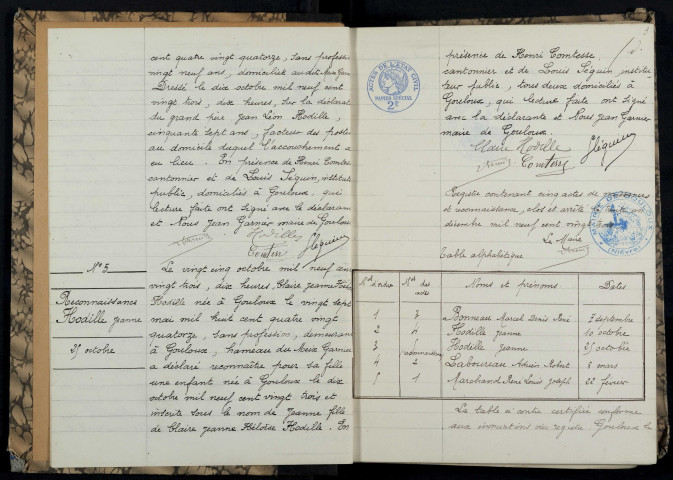 cent quatre vingt quatorze, sans professi
vingt neuf ans, domiciliés audit Meix Garn
Dressé le dix octobre mil neuf cent
vingt trois, dix heures, sur la déclarat
du grand père Jean Léon Hodille,
cinquante sept ans, facteur des postes
au domicile duquel l'accouchement a
eu lieu. En présence de Henri Comtes
cantonnier et de Louis Seguin, institute
public, domiciliés à Gouloux. qui
lecture faite ont signé avec le déclarant
et Nous Jean Garnier maire de Gouloux
Hodille
Comtesse Seguin
N° 5
Reconnaissance
Hodille Jeanne
25 octobre
Le vingt cinq octobre mil neuf cen
vingt trois, dix heures, Claire Jeanne
Hodille née à Gouloux le vingt sept
mai mil huit cent quatre vingt
quatorze, sans profession, demeurant
à Gouloux, hameau du Meix Garnier
a déclaré reconnaître pour sa fille
une enfant née à Gouloux le dix
octobre mil neuf cent vingt trois et
inscrite sous le nom de Jeanne fille
de Claire Jeanne Héloïse Hodille. En
ACTES DE L'ÉTAT CIVIL
PAPIER SPÉCIAL
2e
présence de Henri Comtesse
cantonnier et de Louis Seguin, institu
teur public, tous deux domiciliés à
Gouloux, qui lecture faite ont signé
avec la déclarante et Nous Jean Garnier
maire de Gouloux.
Claire Hodille
Comtesse Seguin
Registre contenant cinq actes de naissances
et reconnaissance, clos et arrêté le
décembre mil neuf cent vingt
Le Maire
MAIRIE DE GOULOUX
Table alphabétique
N° d'ordre N° des actes Noms et prénoms Dates
1 3 Bonneau Marcel Denis René 7 septembre
2 4 Hodille Jeanne 10 octobre
3 5 Hodille Jeanne 25 octobre
4 2 Laboureau Adrien Robert 8 mars
5 1 Marchand René Louis Joseph 22 février
La table ci contre certifiée conforme
aux inscriptions du registre. Gouloux le